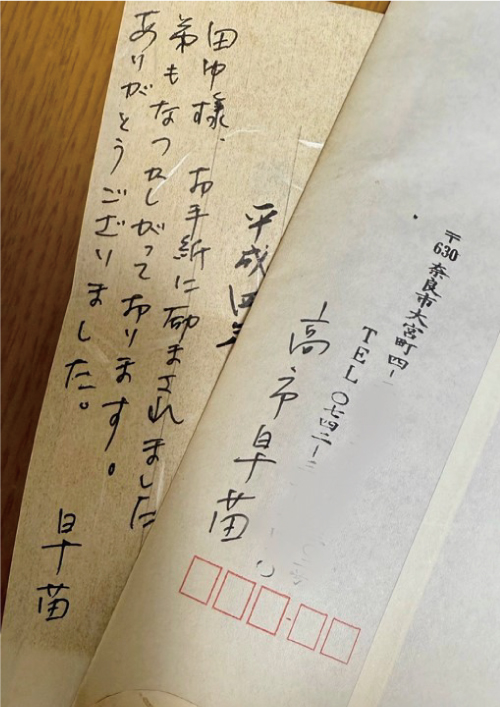 田中様、お手紙に励まされました
弟もなつかしがっております。
ありがとうございました。
早苗
平成四
〒
630
奈良市大宮町四ー
TEL〇七四二ー
高市早苗